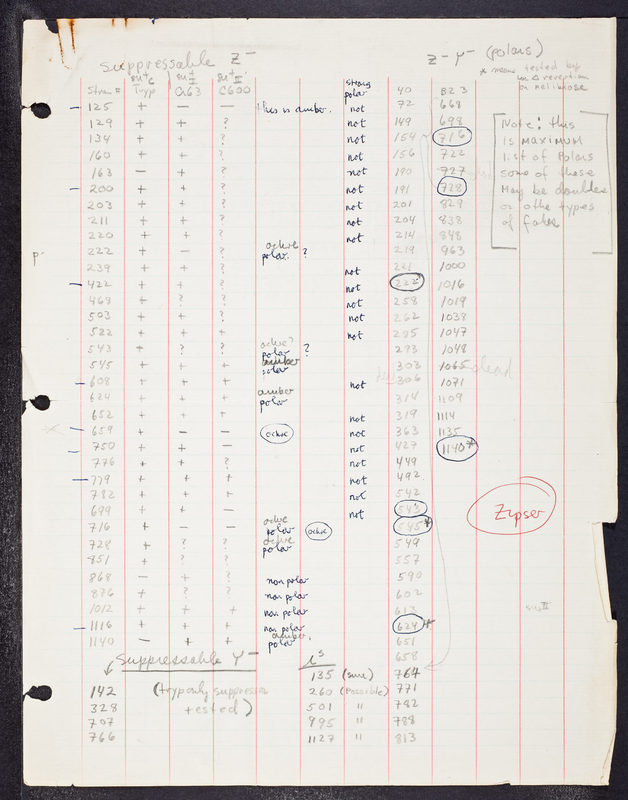 Suppressable Z⁻
Z⁻Y⁻ (polars)
* means tested by
reversion
on melibiose
su⁺c su⁺I su⁺II
Strain # Tryp CR63 C600 strong polar 40 823
125 + — — this is amber. not 72 668
129 + + ? not 149 698
134 + + ? not 154 716
160 + + ? not 156 722
163 — + ? not 190 727
200 + + ? not 191 728
203 + + ? not 201 829
211 + + ? not 204 838
220 + + ? not 214 848
222 + — ? ochre polar. ? 219 963
239 + + ? not 221 1000
422 + + ? not 222* 1016
463 + ? ? not 258 1019
503 + + ? not 262 1038
522 + + + not 285 1047
543 + ? ? ochre? polar ? 293 1048
545 + + + amber polar 303 1065 dead
608 + + + not 306 1071
624 + + + amber polar 314 1109
652 + + + not 319 1114
659 + — — ochre not 363 1135
750 + + — not 427 1140*
776 + + ? not 449
779 + + + not 492
782 + + + not 542
699 + + — not 543
716 + — — ochre polar ochre 545*
728 + ? ? ochre polar 549
851 + ? ? 557
868 — + — non polar 590
876 + ? ? non polar 602
1012 + + + non polar 613
1116 + + + non polar 624*
1140 — + + amber. polar 651
658
Note: this
is maximum
list of Polars
some of these
May be doubles
or other types
of
Zipser
su II
Suppressable Y⁻
iˢ
135 (sure) 764
142 (tryp only suppressor 260 (possible) 771
328 tested) 501 " 782
707 895 " 788
766 1127 " 813